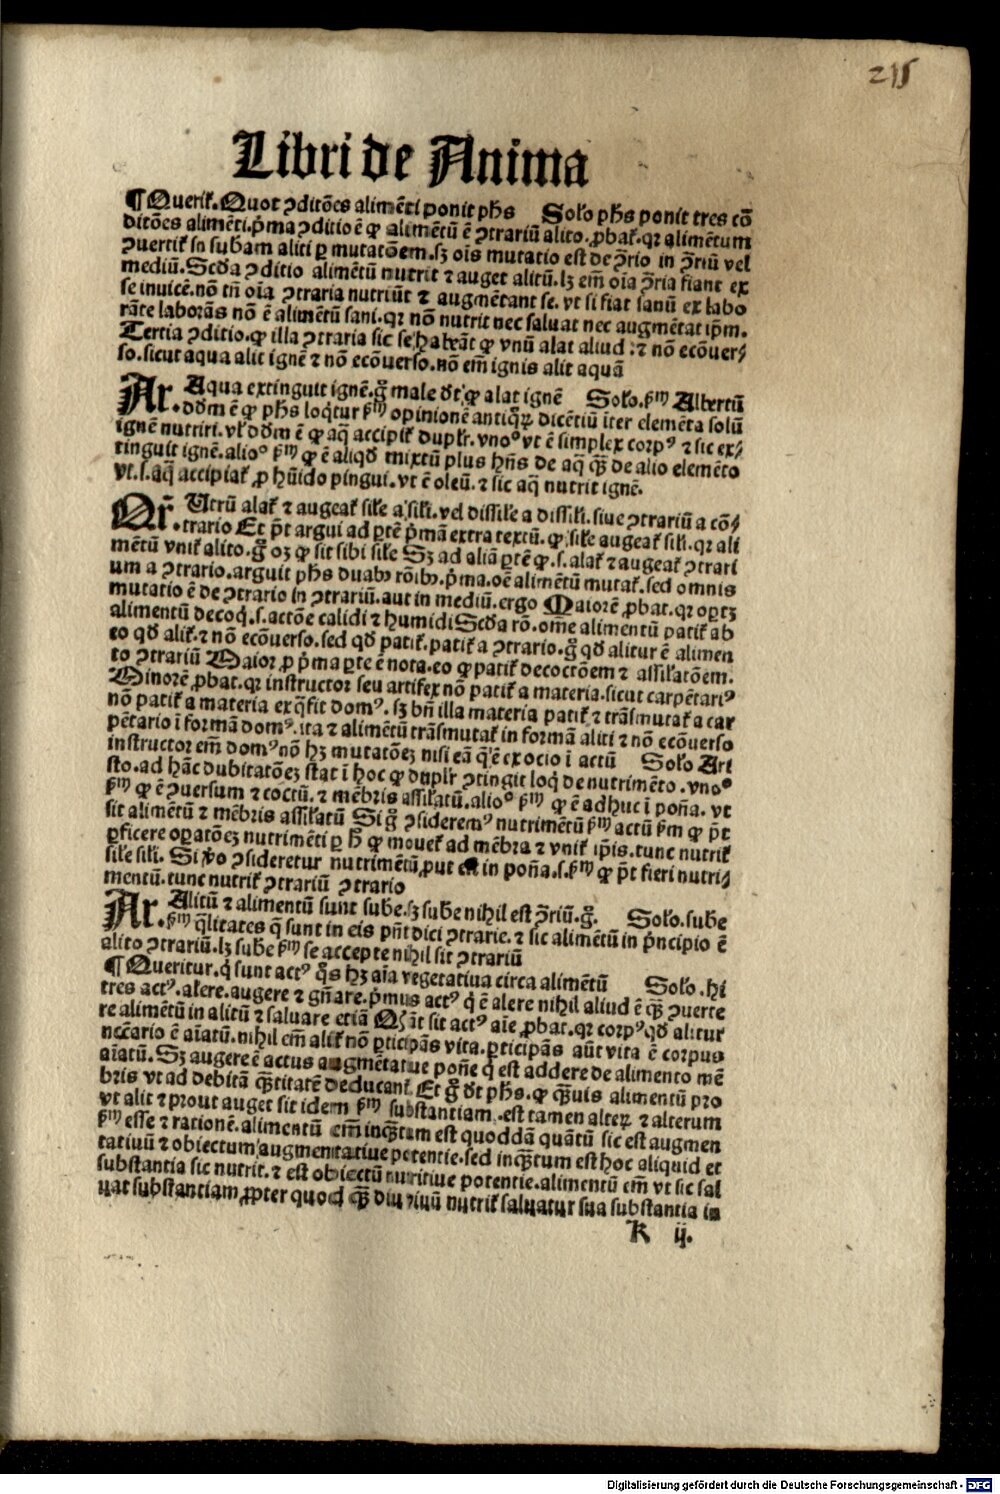 215
Libri de Anima
¶Querit̃. Quot ꝯditões alimẽti ponit ph̃s Solo ph̃s ponit tres cõ
ditões alimẽti. p̃ma ꝯditio ẽ ꝙ alimẽtũ ẽ ꝯtrariũ alito. ꝓbat̃. qꝛ alimẽtum
ꝯuertit̃ in subam aliti ꝑ mutatõem. sꝫ oĩs mutatio est de ꝯ̃rio in ꝯ̃riũ vel
mediũ. Scd̃a ꝯditio alimẽtũ nutrit ⁊ auget alitũ. lꝫ em̃ oĩa ꝯ̃ria fiant ex
se inuicẽ. nõ tñ oĩa ꝯtraria nutriũt ⁊ augmẽtant se. vt si fiat sanũ ex labo
rãte laborãs nõ ẽ alimẽtũ sani. qꝛ nõ nutrit nec saluat nec augmẽtat ip̃m.
Tertia ꝯditio. ꝙ illa ꝯtraria sic se habeãt ꝙ vnũ alat aliud: ⁊ nõ ecõuer⸗
so. sicut aqua alit ignẽ ⁊ nõ ecõuerso. nõ em̃ ignis alit aquã
Ar. Aqua extinguit ignẽ. g̃ male d̃t ꝙ alat ignẽ Solo. ẜm Albertũ
dd̃m ẽ ꝙ ph̃s loq̃tur ẜm opinionẽ antiq̃ꝝ dicẽtiũ iter elemẽta solũ
ignẽ nutriri. vl̃ dd̃m ẽ ꝙ aq̃ accipit̃ dupl̃r. vnoº vt ẽ simplex corpꝰ ⁊ sic ex⸗
tinguit ignẽ. alioº ẜm ꝙ ẽ aliqd̃ mixtũ plus hñs de aq̃ q̃ȝ de alio elemẽto
vt. s. aq̃ accipiat̃ ꝓ hũido pingui. vt ẽ oleũ. ⁊ sic aq̃ nutrit ignẽ.
Qr̃. Utrũ alat̃ ⁊ augeat̃ sile a sili. vel dissile a dissili. siue ꝯtrariũ a cõ⸗
trario Et p̃t argui ad ꝑtẽ p̃mã extra textũ. ꝙ sile augeat̃ sili. qꝛ ali
mẽtũ vnit̃ alito. g̃ oꝫ ꝙ sit sibi sile Sꝫ ad aliã ꝑtẽ ꝙ. s. alat̃ ⁊ augeat̃ ꝯtrari
um a ꝯtrario. arguit ph̃s duabꝫ rõibꝫ. p̃ma. oẽ alimẽtũ mutat̃. sed omnis
mutatio ẽ de ꝯtrario in ꝯtrariũ. aut in mediũ. ergo Maiorẽ ꝓbat. qꝛ oꝑtꝫ
alimentũ decoq̃. s. actõe calidi ⁊ humidi Scd̃a rõ. om̃e alimentũ patit̃ ab
eo qd̃ alit̃. ⁊ nõ ecõuerso. sed qd̃ patit̃. patit̃ a ꝯtrario. g̃ qd̃ alitur ẽ alimen
to ꝯtrariũ Maior ꝓ p̃ma ꝑte ẽ nota. eo ꝙ patit̃ decoctõem ⁊ assilatõem.
Minorẽ ꝓbat. qꝛ instructor seu artifex nõ patit̃ a materia. sicut carpẽtariꝰ
nõ patit̃ a materia ex q̃ fit domꝰ. sꝫ bñ illa materia patit̃ ⁊ trãsmutat̃ a car
pẽtario ĩ formã domꝰ. ita ⁊ alimẽtũ trãsmutat̃ in formã aliti ⁊ nõ ecõuerso
instructor em̃ domꝰ nõ hꝫ mutatõeꝫ nisi eã q̃ ẽ ex ocio ĩ actũ Solo Ari
sto. ad hãc dubitatõeꝫ stat ĩ hoc ꝙ dupl̃r ꝯtingit loq̃ de nutrimẽto. vnoº
ẜm ꝙ ẽ ꝯuersum ⁊ coctũ. ⁊ mẽbris assilatũ. alioº ẜm ꝙ ẽ adhuc ĩ poña. vt
sit alimẽtũ ⁊ mẽbris assilatũ Si g̃ ꝯsideremꝰ nutrimẽtũ ẜm actũ ẜm ꝙ p̃t
ꝑficere oꝑatõeꝫ nutrimẽti ꝑ h̃ ꝙ mouet̃ ad mẽbra ⁊ vnit̃ ip̃is. tunc nutrit̃
sile sili. Si ꝟo ꝯsideretur nutrimẽtũ ꝓut est in poña. s. ẜm ꝙ p̃t fieri nutri⸗
mentũ. tunc nutrit̃ ꝯtrariũ ꝯtrario
Ar. Alitũ ⁊ alimentũ sunt sube. sꝫ sube nihil est ꝯ̃riũ. g̃. Solo. sube
ẜm q̃litates q̃ sunt in eis pñt dici ꝯtrarie. ⁊ sic alimẽtũ in p̃ncipio ẽ
alito ꝯtrariũ. lꝫ sube ẜm se accepte nihil sit ꝯtrariũ
¶Queritur. q̃ sunt actꝰ q̃s hꝫ aĩa vegetatiua circa alimẽtũ Solo. hi
tres actꝰ. alere. augere ⁊ gñare. p̃mus actꝰ q̃ ẽ alere nihil aliud ẽ q̃ȝ ꝯuerte
re alimẽtũ in alitũ ⁊ saluare etiã Qꝫ ãt sit actꝰ aĩe ꝓbat. qꝛ corpꝰ qd̃ alitur
necc̃ario ẽ aĩatũ. nihil em̃ alit̃ nõ ꝑticipãs vita. ꝑticipãs aũt vita ẽ corpus
aĩatũ. Sꝫ augere ẽ actus augmẽtatiue poñe q̃ est addere de alimento mẽ
bris vt ad debitã q̃ȝtitatẽ deducant̃. Et g̃ d̃t ph̃s. ꝙ q̃ȝuis alimentũ pro
vt alit ⁊ prout auget sit idem ẜm substantiam. est tamen alteꝝ ⁊ alterum
ẜm esse ⁊ rationẽ. alimentũ em̃ inq̃ȝtum est quoddã quãtũ sic est augmen
tatiuũ ⁊ obiectum augmentatiue potentie. sed inq̃ȝtum est hoc aliquid et
substantia sic nutrit. ⁊ est obiectũ nutritiue potentie. alimentũ em̃ vt sic sal
uat substantiam ꝓpter quod q̃ȝ diu viuũ nutrit̃ saluatur sua substantia in
K ij.
Digitalisierung gefördert durch die Deutsche Forschungsgemeinschaft - DFG